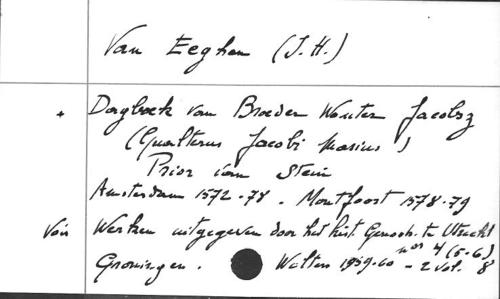 Van Eeghen (J.H.)
+ Dagboek van Broeder Wouter Jacobsz
(Gualterus Jacobi Masius)
Prior van Stein
Amsterdam 1572-78. Montfoort 1578-79
Voir Werken uitgegeven door het hist. Genoots. te Utrecht
nos 4 (5-6)
Groningen. Wolters 1959-60 - 2 vol. 8